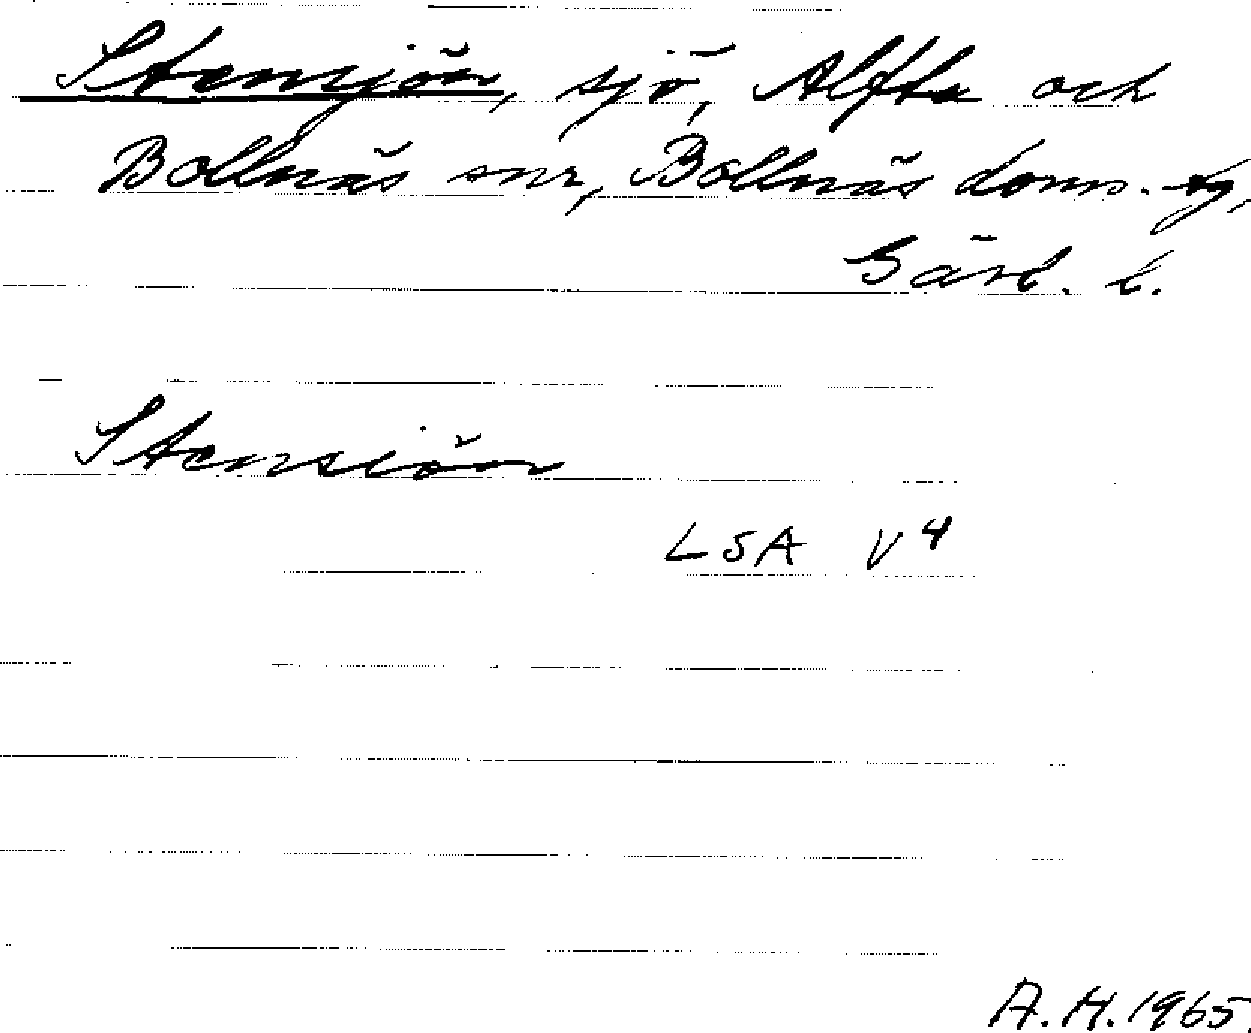 Stensjön, sjö, Alfta och
Bollnäs snr, Bollnäs doms. tg,
Gävl. l.
Stensiön
LSA V4
A.H. 1965.